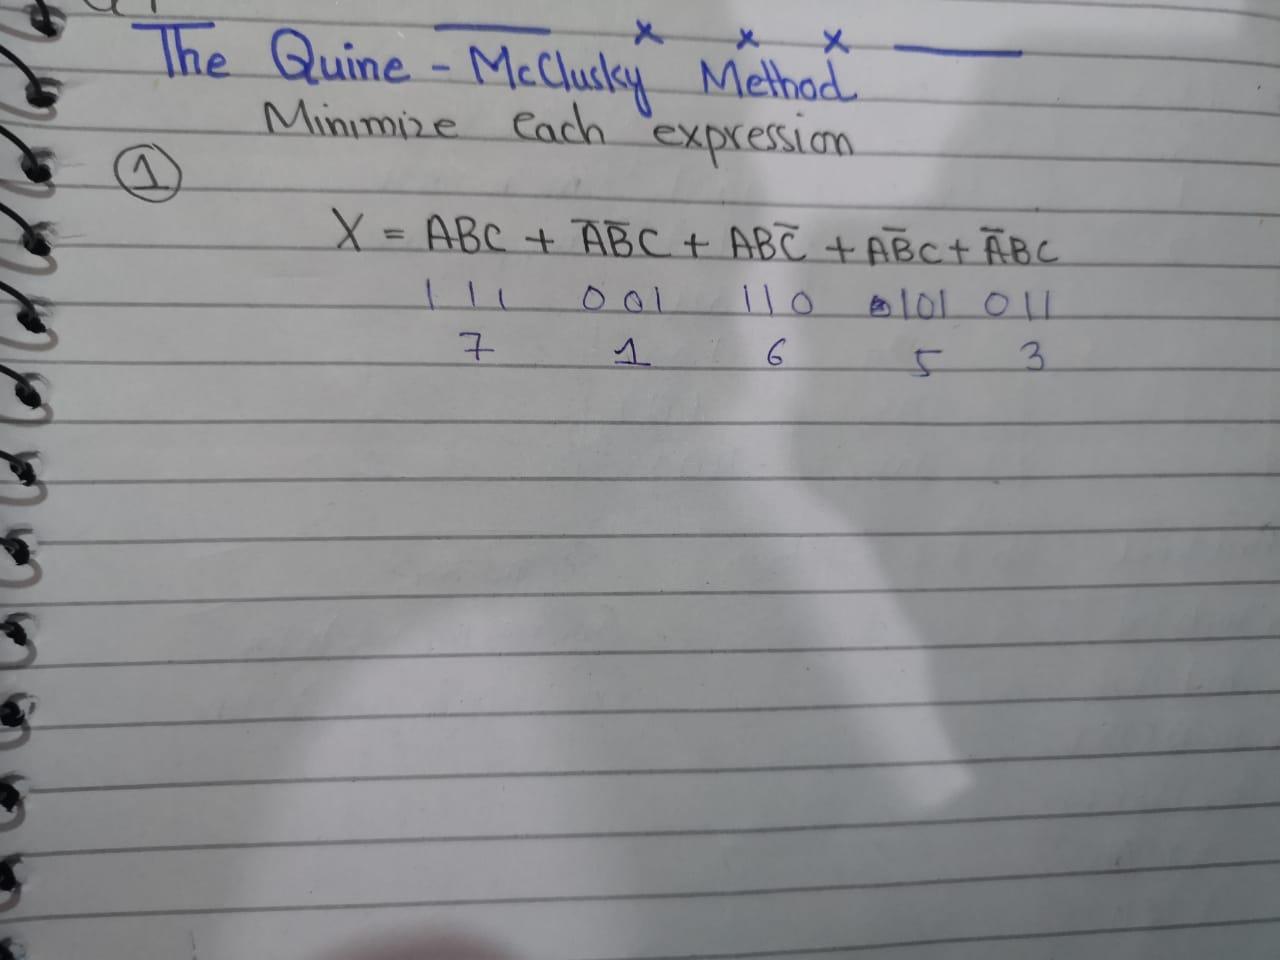 The Quine - McClusky Method
Minimize each expression
1
X = ABC + A̅B̅C + ABC̅ + AB̅C + A̅BC
111 001 110 101 011
7 1 6 5 3